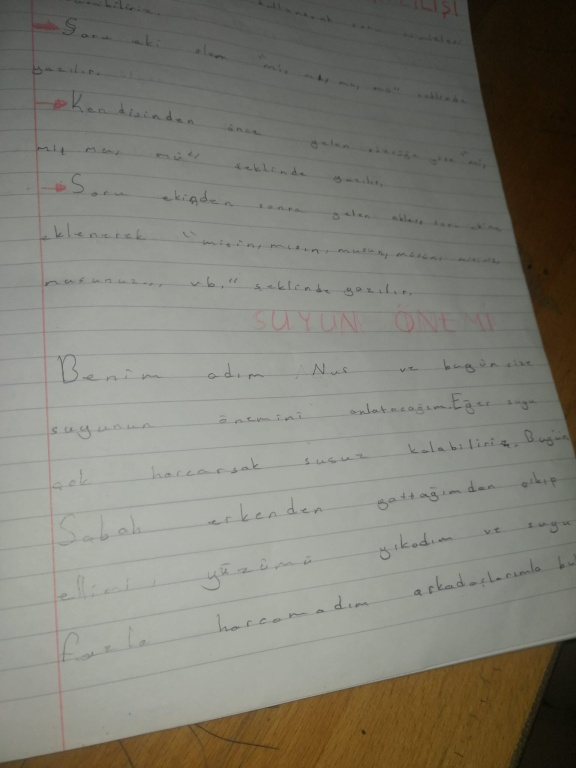 YILIŞI
kullanarak
Soru eki olan "mı, mi, mu, mü" şeklinde
yazılır.
Kendisinden önce gelen göre "mı,
mi, mu, mü" şeklinde yazılır.
Soru ekinden sonra gelen ekler soru ekine
eklenerek "misin, mısın, musun,
musunuz... vb." şeklinde yazılır.
SUYUN ÖNEMİ
Benim adım Nus ve bugün size
suyunun önemini anlatacağım. Eğer suyu
çok harcarsak susuz kalabiliriz. Bugün
Sabah erkenden yattağımdan çıkıp
ellimi, yüzümü yıkadım ve suyu
fazla harcamadım arkadaşlarımla bu